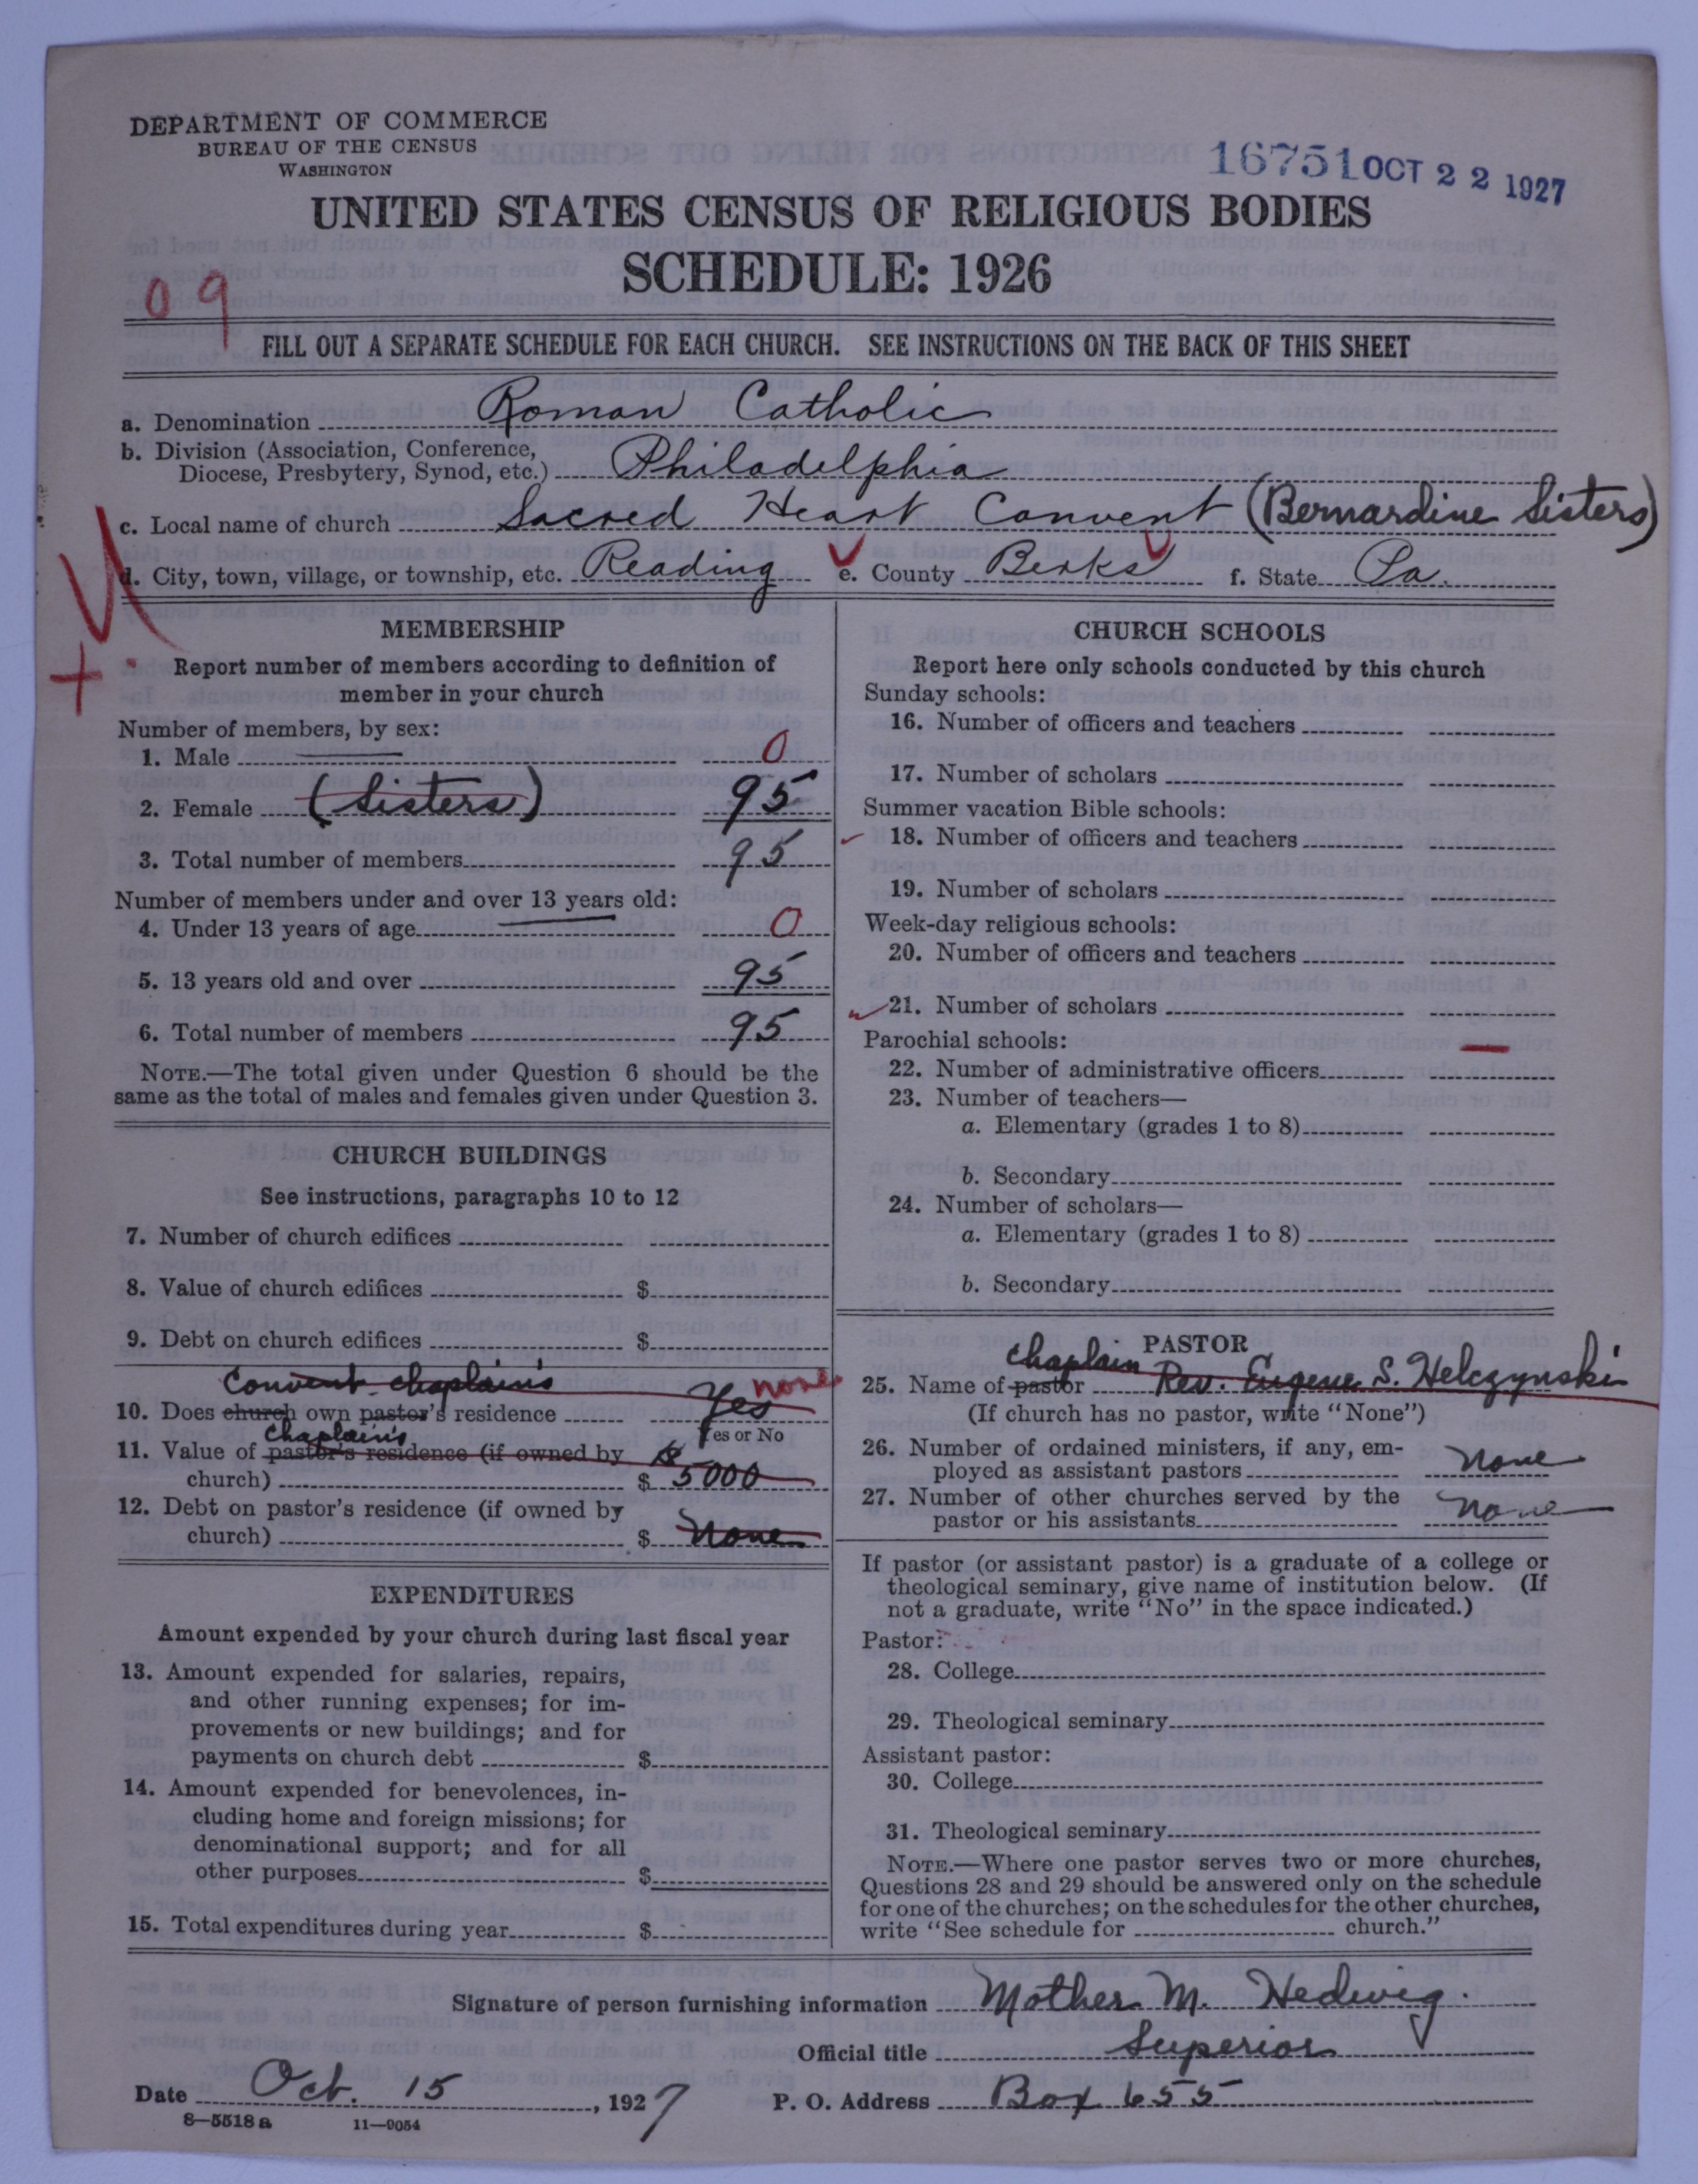 DEPARTMENT OF COMMERCE
BUREAU OF THE CENSUS
WASHINGTON
16751 OCT 22 1927
UNITED STATES CENSUS OF RELIGIOUS BODIES
SCHEDULE: 1926
09
FILL OUT A SEPARATE SCHEDULE FOR EACH CHURCH. SEE INSTRUCTIONS ON THE BACK OF THIS SHEET
a. Denomination Roman Catholic
b. Division (Association, Conference,
Diocese, Presbytery, Synod, etc.) Philadelphia
c. Local name of church Sacred Heart Convent (Bernardine Sisters)
d. City, town, village, or township, etc. Reading e. County Berks f. State Pa.
MEMBERSHIP
Report number of members according to definition of
member in your church
Number of members, by sex:
1. Male 0
2. Female (Sisters) 95
3. Total number of members 95
Number of members under and over 13 years old:
4. Under 13 years of age 0
5. 13 years old and over 95
6. Total number of members 95
NOTE.—The total given under Question 6 should be the
same as the total of males and females given under Question 3.
CHURCH BUILDINGS
See instructions, paragraphs 10 to 12
7. Number of church edifices
8. Value of church edifices $
9. Debt on church edifices $
Convent chaplain's none
10. Does church own pastor's residence Yes
Chaplain's Yes or No
11. Value of pastor's residence (if owned by
church) $ 5000
12. Debt on pastor's residence (if owned by
church) $ None
EXPENDITURES
Amount expended by your church during last fiscal year
13. Amount expended for salaries, repairs,
and other running expenses; for im-
provements or new buildings; and for
payments on church debt $
14. Amount expended for benevolences, in-
cluding home and foreign missions; for
denominational support; and for all
other purposes $
15. Total expenditures during year $
CHURCH SCHOOLS
Report here only schools conducted by this church
Sunday schools:
16. Number of officers and teachers
17. Number of scholars
Summer vacation Bible schools:
18. Number of officers and teachers
19. Number of scholars
Week-day religious schools:
20. Number of officers and teachers
21. Number of scholars
Parochial schools:
22. Number of administrative officers
23. Number of teachers—
a. Elementary (grades 1 to 8)
b. Secondary
24. Number of scholars—
a. Elementary (grades 1 to 8)
b. Secondary
PASTOR
chaplain
25. Name of pastor Rev. Eugene S. Helczynski
(If church has no pastor, write "None")
26. Number of ordained ministers, if any, em-
ployed as assistant pastors None
27. Number of other churches served by the
pastor or his assistants None
If pastor (or assistant pastor) is a graduate of a college or
theological seminary, give name of institution below. (If
not a graduate, write "No" in the space indicated.)
Pastor:
28. College
29. Theological seminary
Assistant pastor:
30. College
31. Theological seminary
NOTE.—Where one pastor serves two or more churches,
Questions 28 and 29 should be answered only on the schedule
for one of the churches; on the schedules for the other churches,
write "See schedule for church."
Signature of person furnishing information Mother M. Hedwig.
Official title Superior
Date Oct. 15, 1927 P. O. Address Box 655
8—5518 a 11—9054